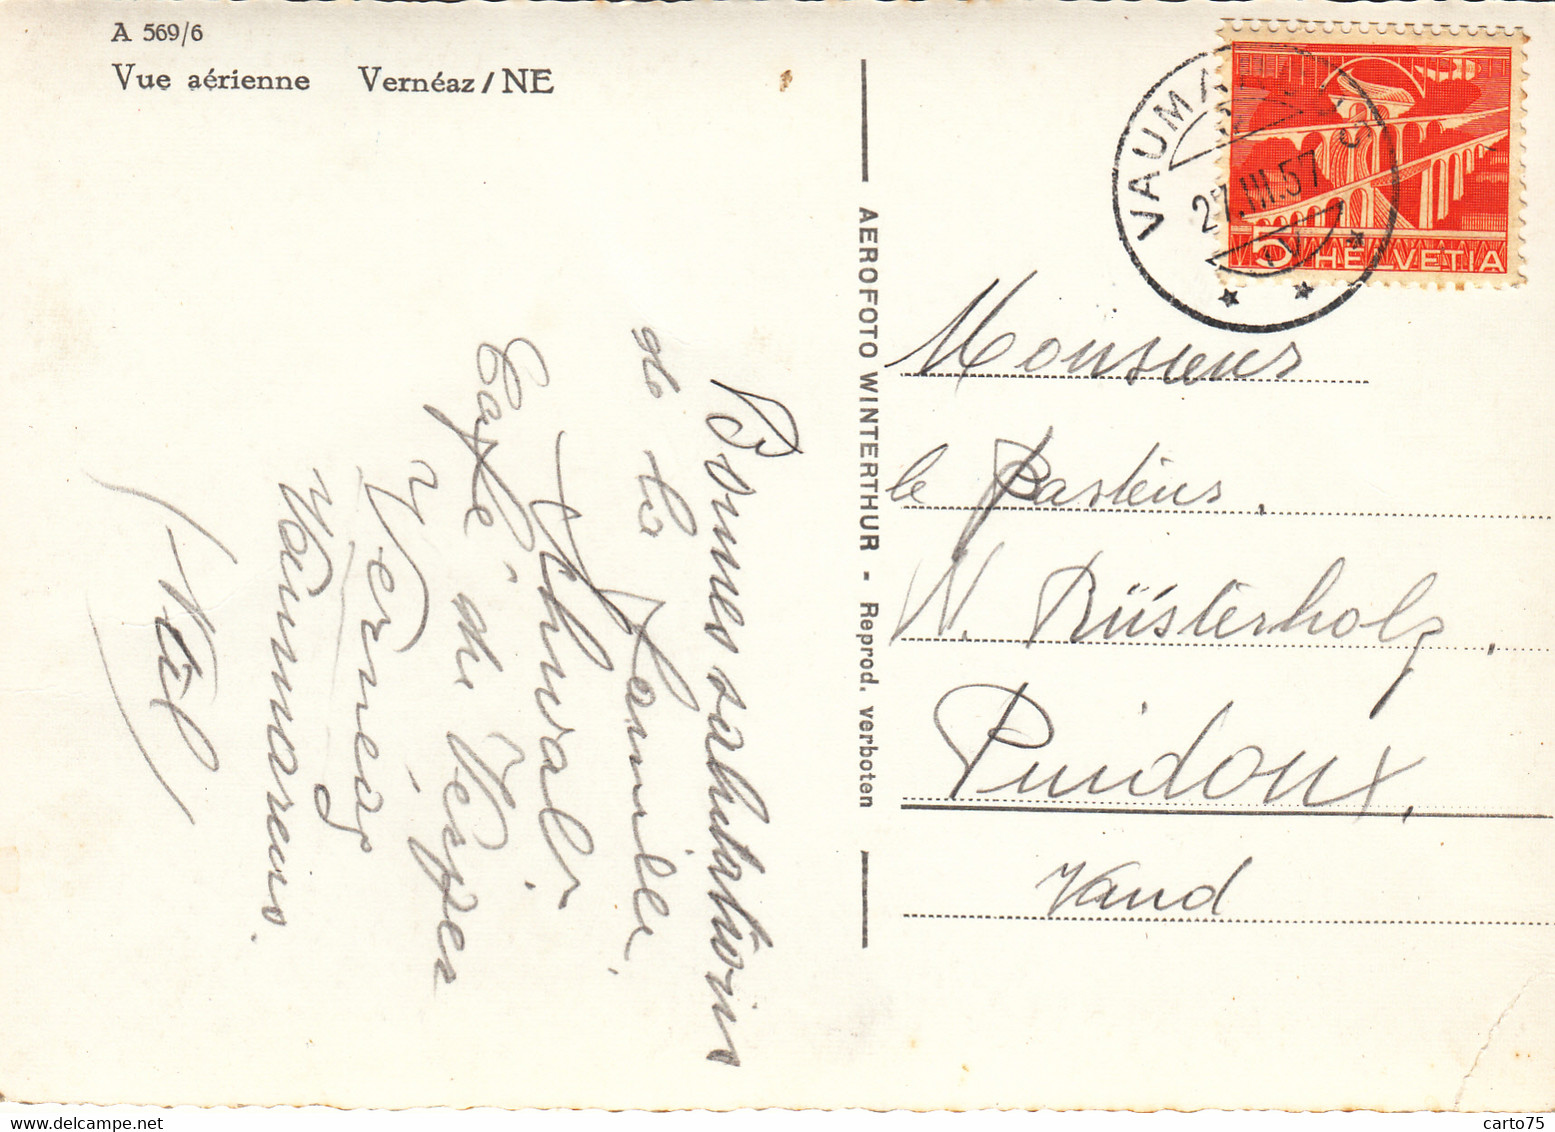 A 569/6
Vue aérienne Vernéaz / NE
Bonnes salutations
de la
famille
Schwab
Café des Vespes
Vernéaz
Vaumarcus.
AEROFOTO WINTERTHUR - Reprod. verboten
VAUMARCUS
27.III.57
5 HELVETIA
Monsieur
le Pasteur,
W. Rüsterholz,
Puidoux,
Vaud
delcampe.net
carto75